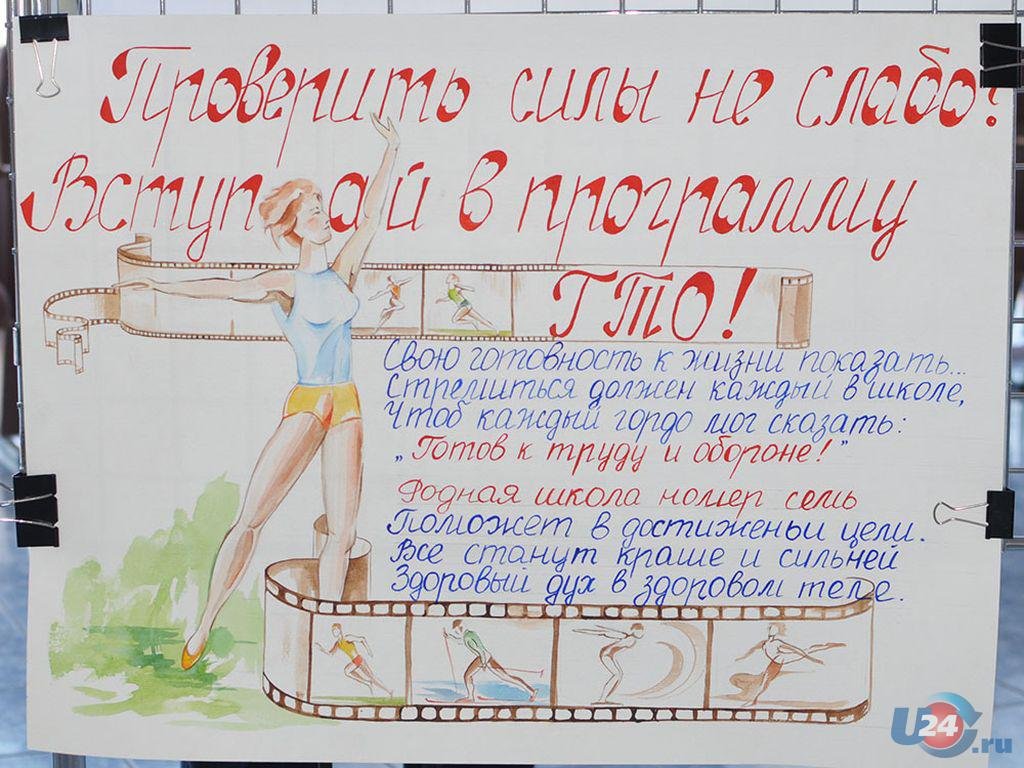 Проверить силы не слабо!
Вступай в программу
ГТО!
Свою готовность к жизни показать...
Стремиться должен каждый в школе,
Чтоб каждый гордо мог сказать:
„Готов к труду и обороне!"
Родная школа номер семь
Поможет в достиженьи цели.
Все станут краше и сильней
Здоровый дух в здоровом теле.
U24.ru